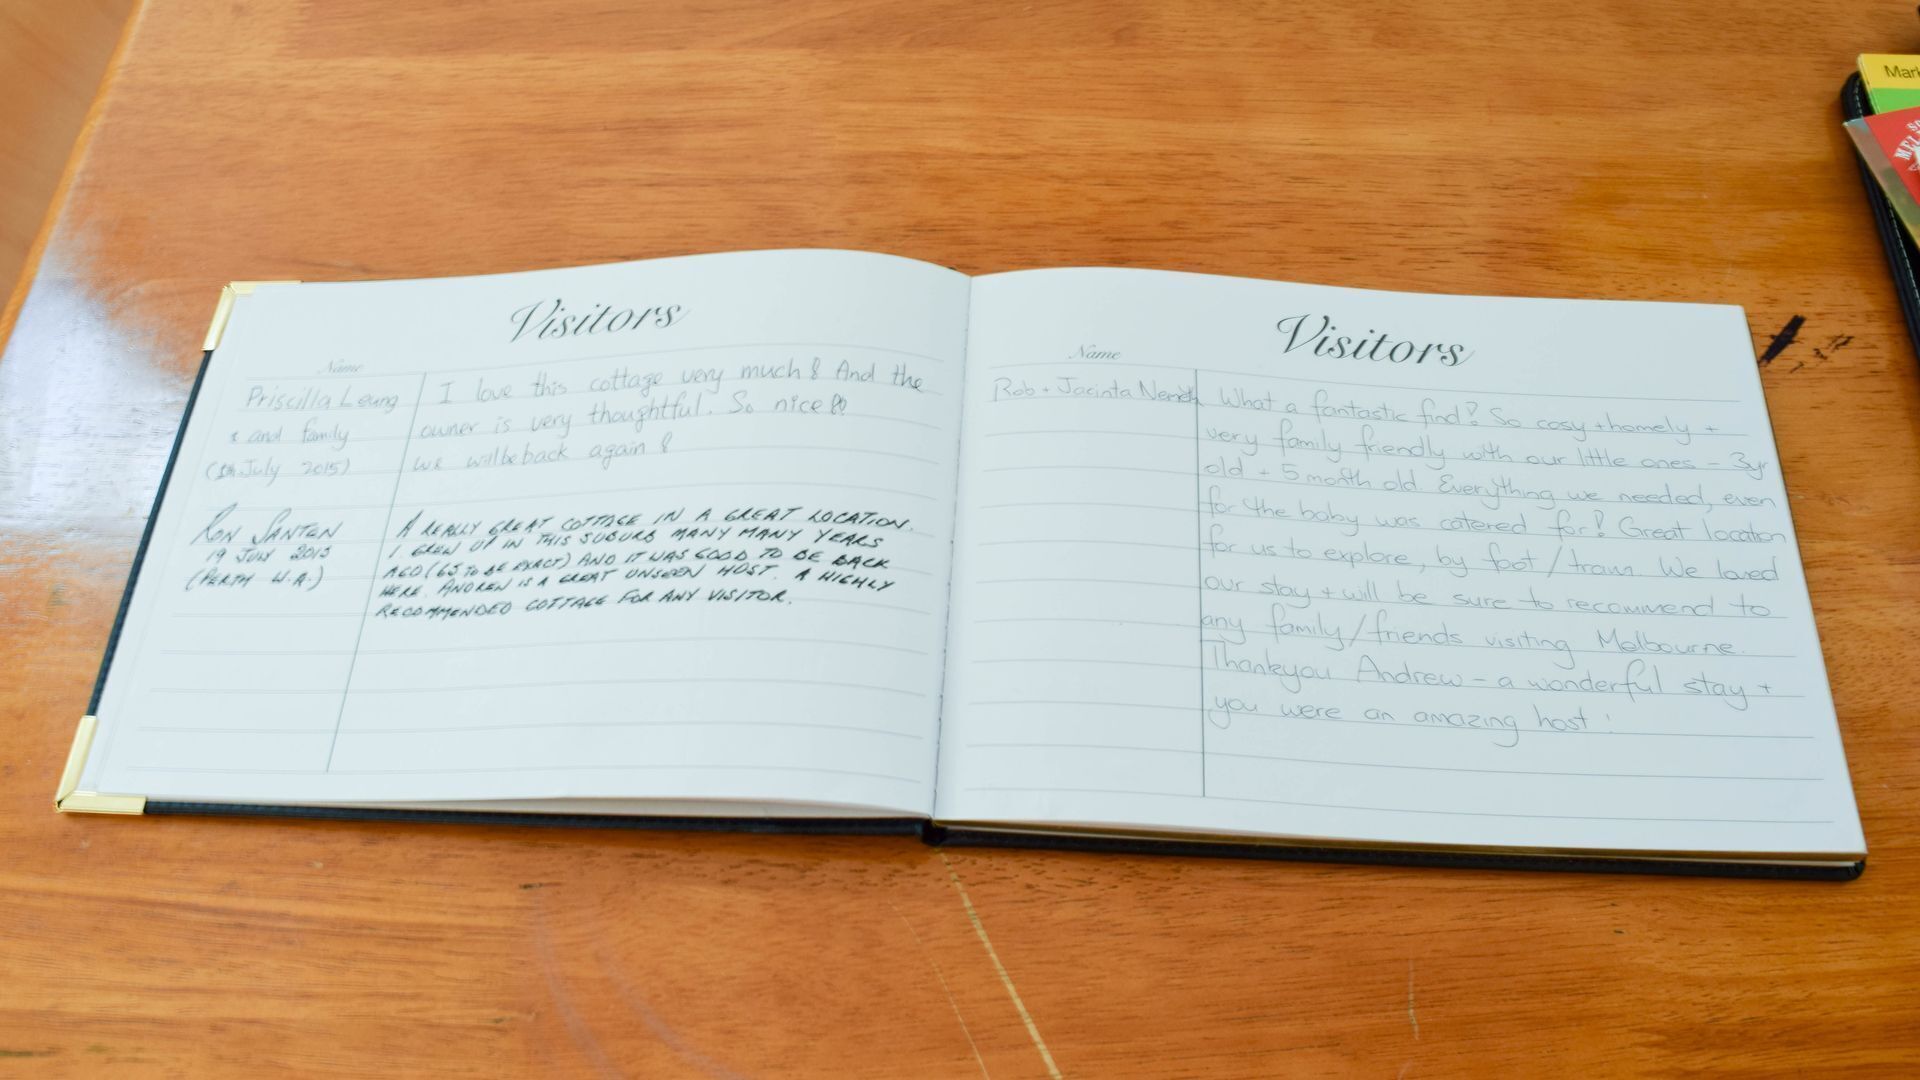 Visitors
Name
Priscilla Leung
and family
July 2015)
I love this cottage very much! And the
owner is very thoughtful. So nice!!
we will be back again!
RON SANTEN
19 JULY 2015
(PERTH W.A.)
A REALLY GREAT COTTAGE IN A GREAT LOCATION.
I GREW UP IN THIS SUBURB MANY MANY YEARS
AGO (65 TO BE EXACT) AND IT WAS GOOD TO BE BACK
HERE. ANDREW IS A GREAT UNSEEN HOST. A HIGHLY
RECOMMENDED COTTAGE FOR ANY VISITOR.
Visitors
Name
Rob + Jacinta
What a fantastic find! So cosy + homely +
very family friendly with our little ones - 3yr
old + 5 month old. Everything we needed, even
for the baby was catered for! Great location
for us to explore, by foot / tram. We loved
our stay + will be sure to recommend to
any family / friends visiting Melbourne.
Thankyou Andrew - a wonderful stay +
you were an amazing host!